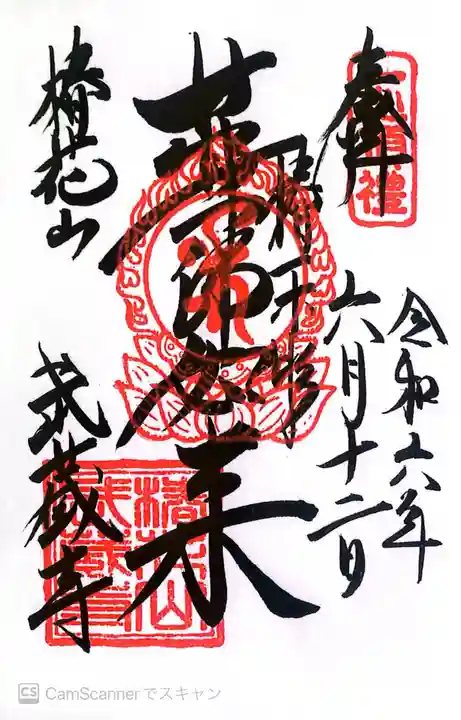 奉拝
令和六年
六月十二日
薬師如来
椿花山
武蔵寺
CamScannerでスキャン